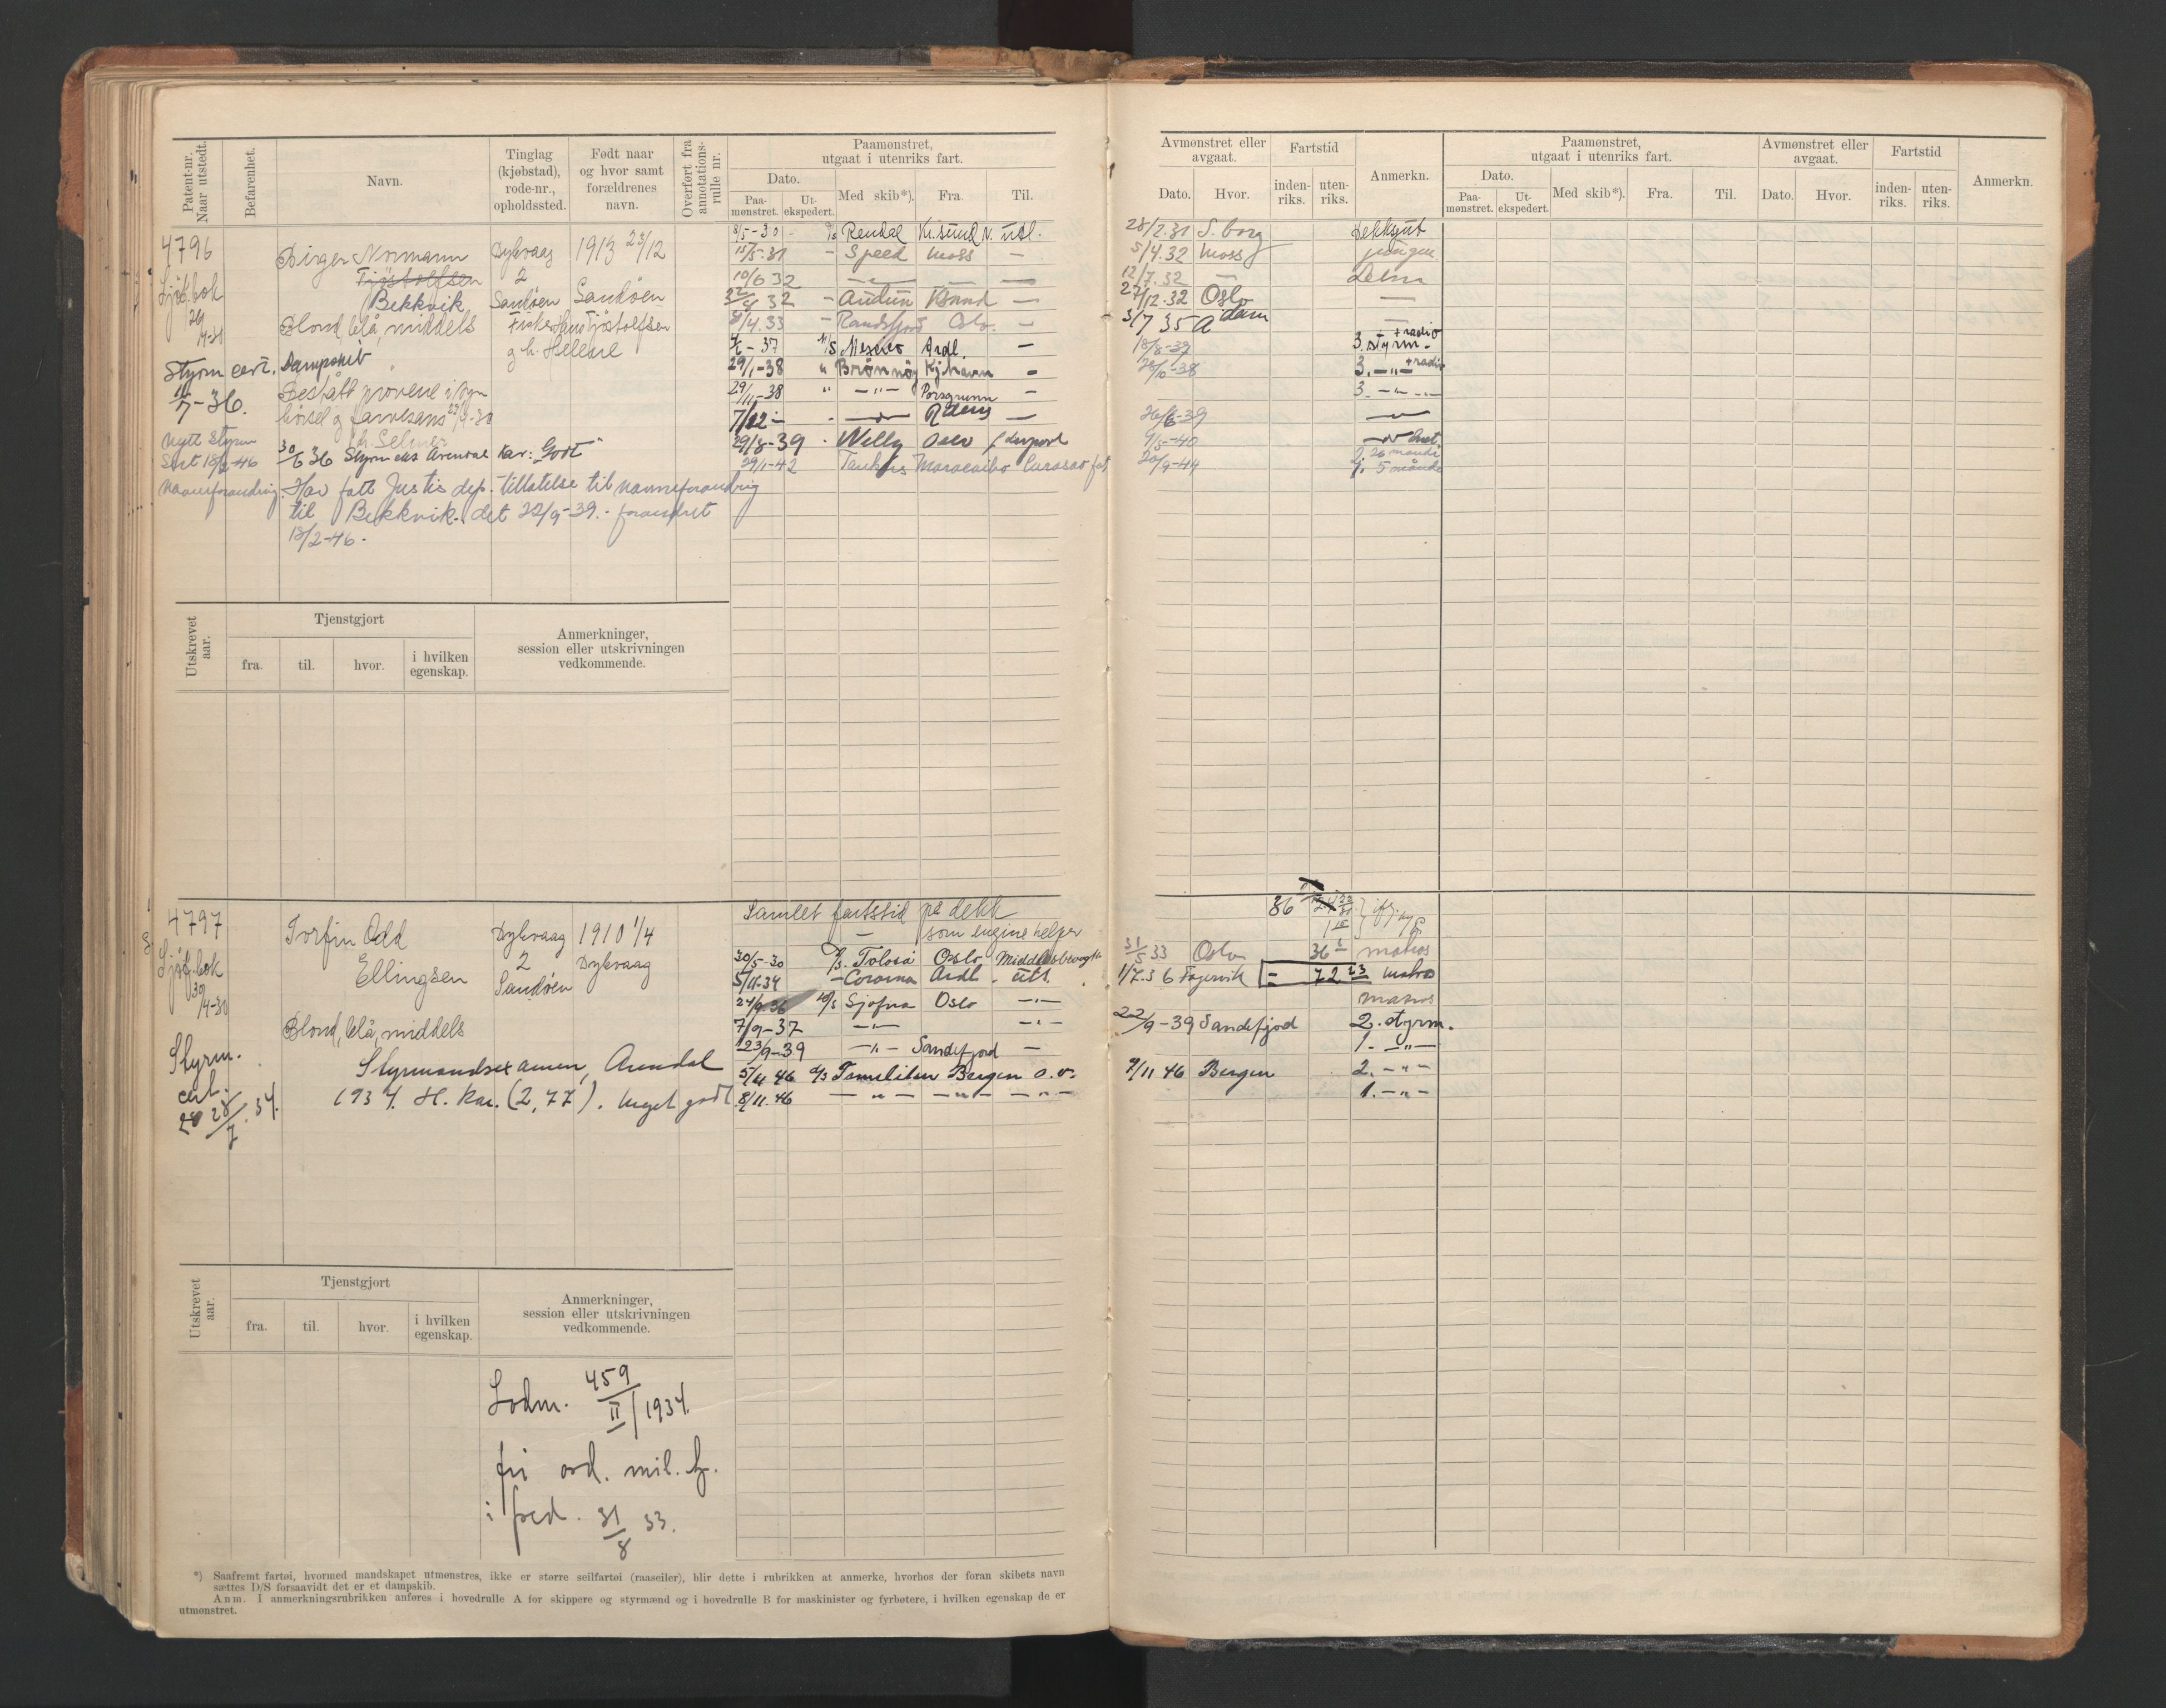 Patent-nr. Naar utstedt.
Befarenhet.
Navn.
Tinglag (kjøbstad), rode-nr., opholdssted.
Født naar og hvor samt forældrenes navn.
Overført fra annotations-rulle nr.
Paamønstret, utgaat i utenriks fart.
Dato.
Paa-mønstret.
Ut-ekspedert.
Med skib*).
Fra.
Til.
Avmønstret eller avgaat.
Dato.
Hvor.
Fartstid
inden-riks.
uten-riks.
Anmerkn.
Paamønstret, utgaat i utenriks fart.
Dato.
Paa-mønstret.
Ut-ekspedert.
Med skib*).
Fra.
Til.
Avmønstret eller avgaat.
Dato.
Hvor.
Fartstid
inden-riks.
uten-riks.
Anmerkn.
4796
Sjøf.bok
29/4-30
Styrm cert.
11/7-36.
Nytt Styrm
Sert 18/2-46
Navneforandring.
Birger Normann
Tjøstolfsen
Bekkvik
Blond, blå, middels
Dampskib
Bestått prøvene i syn
hørsel og farvesans 29/4-30
30/6 36 Styrm eks Arendal Kar: "Godt"
Har fått Justis dep. tillatelse til navneforandrig
til Bekkvik. det 22/9-39.- forandret
18/2-46.-
Dykvaag
2
Sandøen
1913 23/12
Sandøen
Fisker Hans Tjøstolfsen
og h. Hellene
8/5-30 - D/s Rendal Kr.sund N. utl. 28/2.31 S.borg Dekksgut
15/5-31 - Speed Moss — 5/4.32 Moss jungm
10/6 32 — — 12/7.32 — Delm
32 - Audun Ksand — 27/12.32 Oslo —
8/4.33 - Randsfjord Oslo — 3/7 35 A'dam —
37 M/S Ardl. — 18/8-39 3. styrm. + radio
29/1-38 " Brønnøy Kjhavn - 3. -"- + radio
29/11-38 " -"- Porsgrunn - 3. -"-
7/12 - — — 26/6-39 —
29/8-39 - Willy Oslo 9/5-40
29/1-42 Tankers Maracaibo Curasao 20/9-44 5 månder
Utskrevet aar.
Tjenstgjort
fra.
til.
hvor.
i hvilken egenskap.
Anmerkninger, session eller utskrivningen vedkommende.
4797
Sjøf.bok
30/4-30
Styrm.
cert.
28/7.34.
Torfin Odd
Ellingsen
Blond, blå, middels
Styrmandsexamen, Arendal
1934. H. Kar. (2,77). Meget godt
Dykvaag
2
Sandøen
1910 1/4
Dykvaag
Samlet fartstid på dekk 86
— som engine helper
30/5-30 D/s. Tolosa Oslo Middlesbrough 31/5 33 Oslo 36 matros
5/11-34 - Corona Ardl. - utl. 1/7.36 Fagervik = 72 23 Matros
24/9 36 M/S Sjofna Oslo -"- matros
7/9-37 -"- -"- 22/9-39 Sandefjod 2. styrm.
23/9-39 -"- Sandefjord — 1. -"-
5/4 46 D/S Tamilitan Bergen o.v. 7/11 46 Bergen 2. -"-
8/11.46 -"- -"- -"- 1. -"-
Utskrevet aar.
Tjenstgjort
fra.
til.
hvor.
i hvilken egenskap.
Anmerkninger, session eller utskrivningen vedkommende.
Lodm. 459/II/1934.
fri ord. mil. tj.
i fred. 31/8 33.
*) Saafremt fartøi, hvormed mandskapet utmønstres, ikke er større seilfartøi (raaseiler), blir dette i rubrikken at anmerke, hvorhos der foran skibets navn
sættes D/S forsaavidt det er et dampskib.
Anm. I anmerkningsrubrikken anføres i hovedrulle A for skippere og styrmænd og i hovedrulle B for maskinister og fyrbøtere, i hvilken egenskap de er
utmønstret.